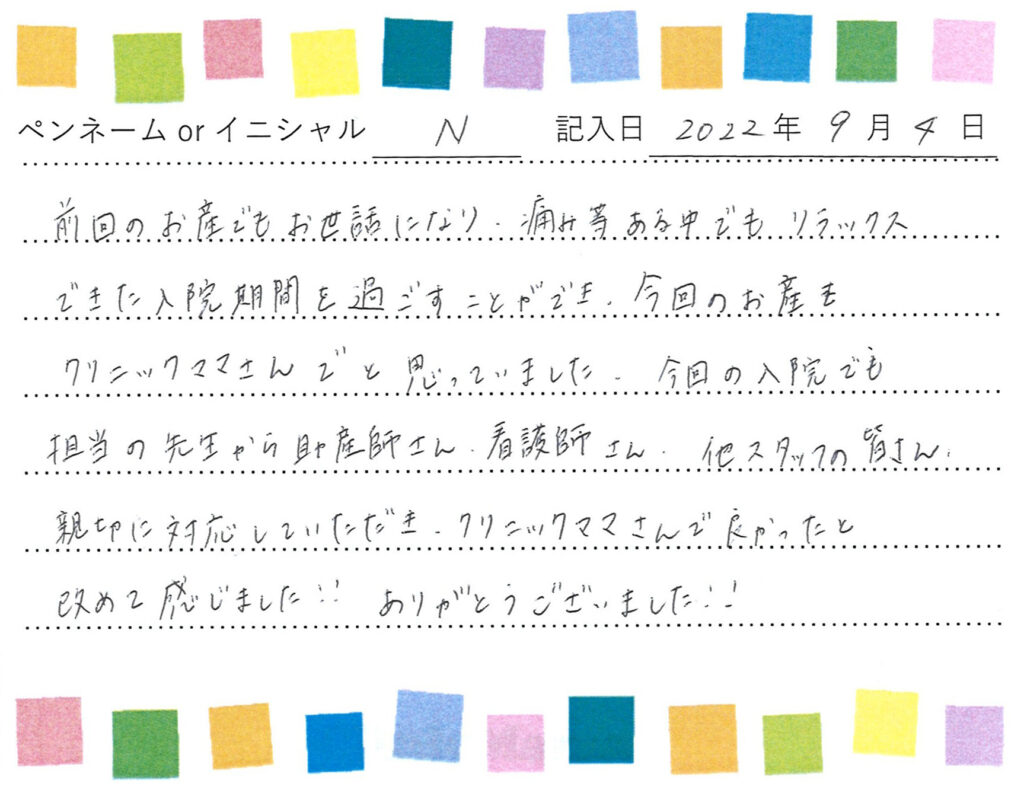 ペンネーム or イニシャル N 記入日 2022年 9月 4日
前回のお産でもお世話になり、痛み等ある中でも リラックス
できた入院期間を過ごすことができ、今回のお産も
クリニックママさんでと思っていました。今回の入院でも
担当の先生から助産師さん、看護師さん、他スタッフの皆さん、
親切に対応していただき、クリニックママさんで良かったと
改めて感じました!! ありがとうございました!!